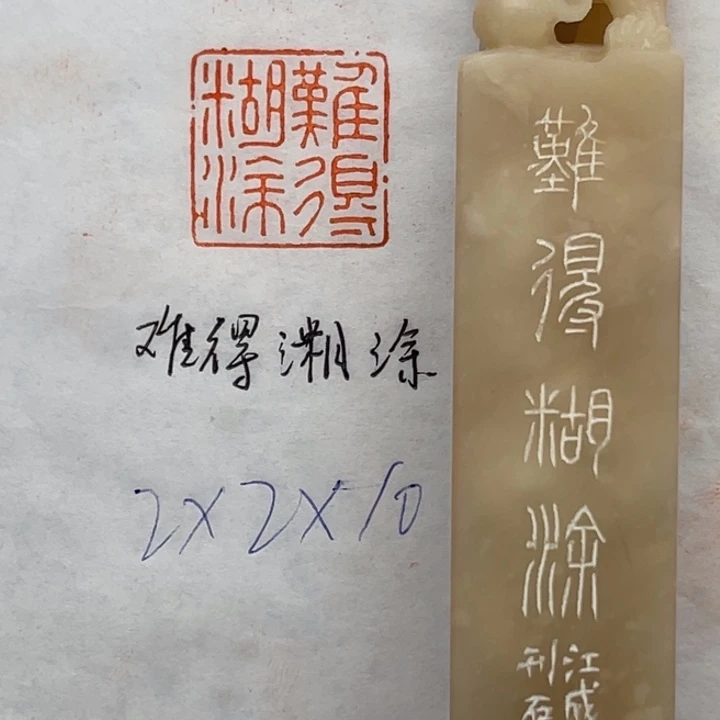 難得
糊涂
难得糊涂
2×2×10
難得糊涂
江
刊